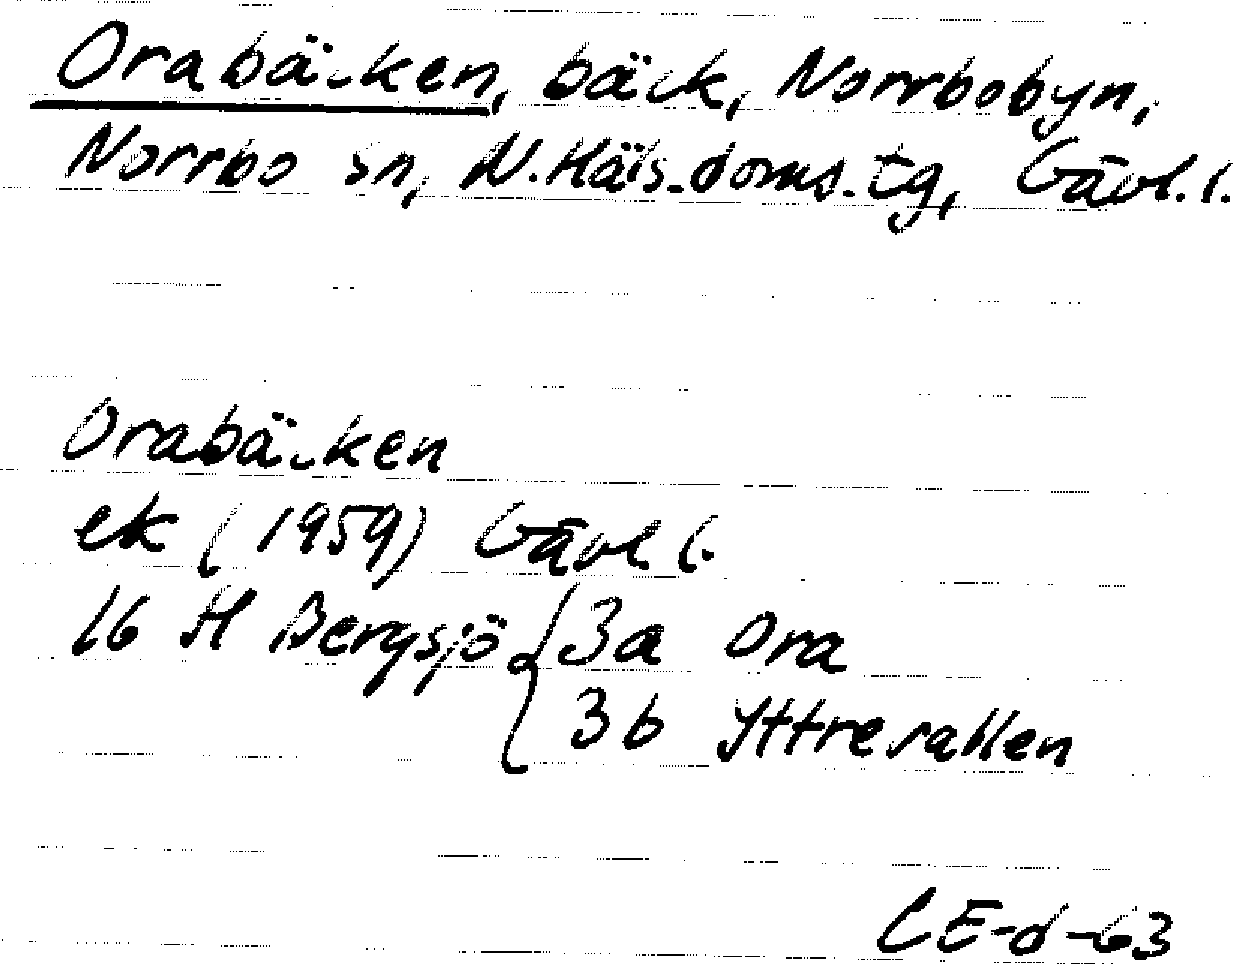 Orabäcken, bäck, Norrbobyn,
Norrbo sn, N. Häls. doms. tg, Gävl. l.
Orabäcken
ek (1959) Gävl l.
16 H Bergsjö { 3a Ora
3b Yttre
CE-d-63